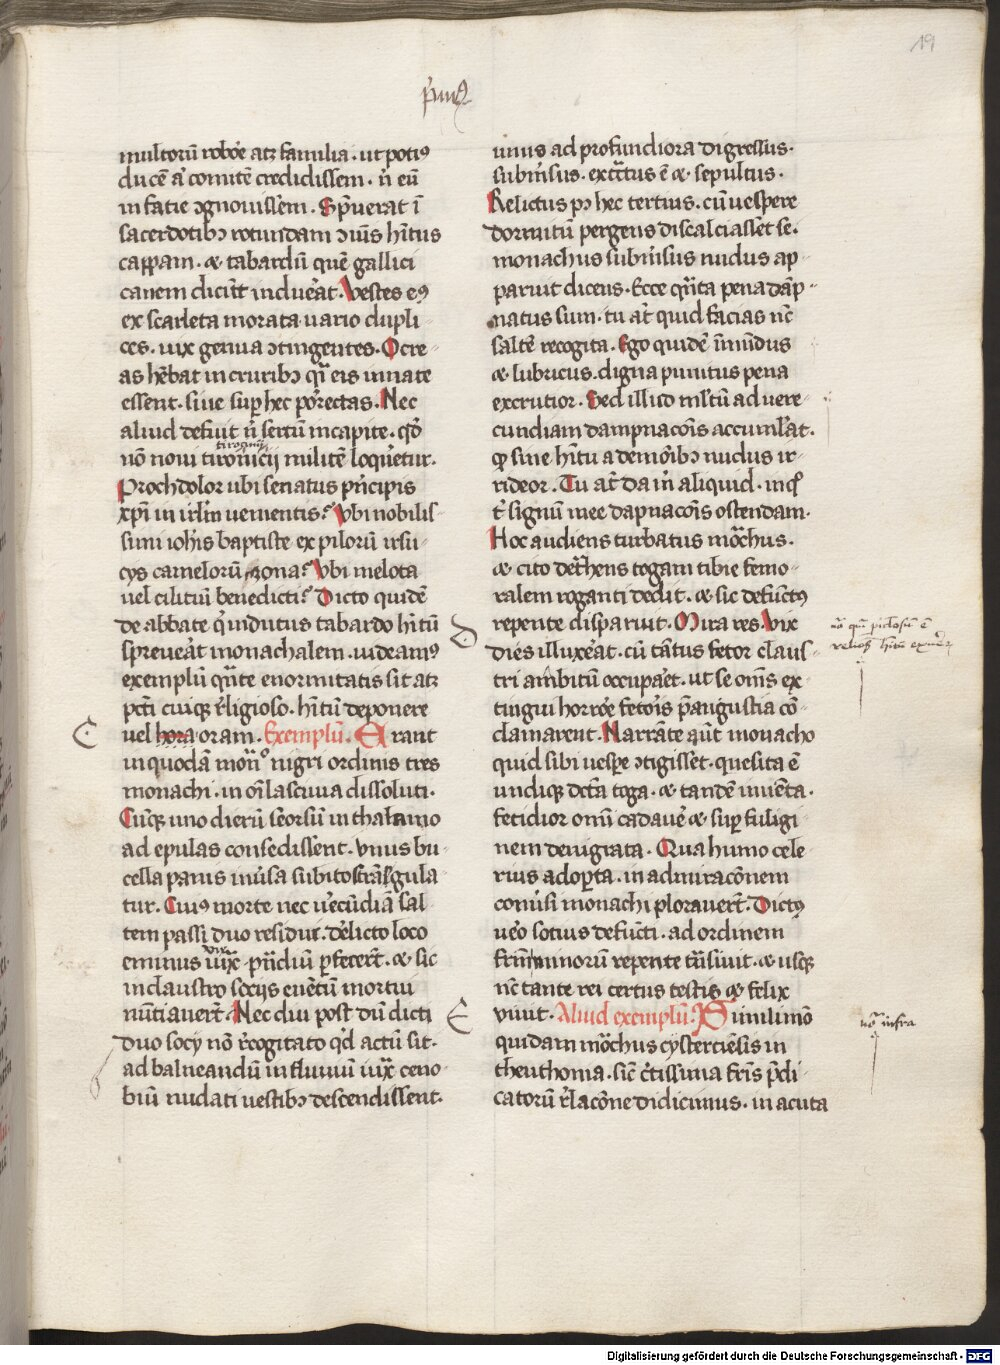 19
p̄muꝰ
multorū roboꝛe atꝫ familia · ut potiꝰ
ducē aꝉ comitē credidissem · n̄ eū
in facie ꝯgnouissem · Sp̄uerat ī
sacerdotibꝫ rotundam ꝯuiꝰ hītus
cappam · ⁊ tabardū quē gallici
canem dicūt induerat · Vestes eꝰ
ex scarleta morata uario dupli
ces · uix genua ꝯtingentes · Ocre
as hēbat in cruribꝫ qͣ eis innate
essent · siue suꝑ hec porrectas · Nec
aliud defuit n̄ sertū in capite · qd̄
tironiū
nō noui tironicij militē loqueretur ·
Proch dolor ubi senatus prīcipis
xp̄i in irłm uenientis? Vbi nobilis
simi ioh̄is baptiste ex pilorū irsu
cys camelorū zona? Vbi melota
uel ciliciū benedicti? Dicto quidē
de abbate qͥ indutus tabardo hītū
spreuerat monachalem · uideamꝰ
exemplū qͣnte enormitatis sit atꝫ
pctī cuiqꝫ religioso · hītū deponere
C uel hora oram · Exemplū · Erant
in quodā mōn° nigri ordinis tres
monachi · in oī lasciuia dissoluti ·
Cūqꝫ uno dierū seorsū in thalamo
ad epulas consedissent · vnus bu
cella panis inusa subito strāgula
tur · Cuiꝰ morte nec uerecūdiā sal
tem passi duo residui · derelicto loco
vix
eminus uix prandiū ꝑfecerūt · ⁊ sic
in claustro socijs euentū mortui
nūtiauerūt · Nec diu post dū dicti
duo socij nō recogitato qd̄ actū sit ·
ad balneandū in fluuiū iuxͣ ceno
biū nudati uestibꝫ descendissent ·
unus ad profundiora digressus ·
submsus · extͣctus ē ⁊ · sepultus ·
Relictus pꝰ hec tertius · cū uespere
dormitū pergens discalciasset se ·
monachus submsus nudus ap
paruit dicens · Ecce qͣnta pena dāp
natus sum · tu at quid facias nūc
saltē recogita · Ego quidē īmūdus
⁊ lubricus · digna punitus pena
excrutior · Sed illud mltū ad uere
cundiam dampnacōis accumlat ·
qꝫ sine hītu a demonibꝫ nudus ir
rideor · Tu at da mͥ aliquid · in qͦ
tͥ signū mee dapnacōis ostendam ·
Hoc audiens turbatus mōchus ·
⁊ cito detͣhens togam tibie femo
ralem roganti dedit · ⁊ sic defūctꝰ
D repente disparuit · Mira res · Vix
dies illuxerat · cū tātus fetor claus
tri ambitū occuparet · ut se om̄s ex
tingui horrore fetoris p̄ angustia cō
clamarent · Narrāte aūt monacho
quid sibi uespe ꝯtigisset · quesita ē
undiqꝫ dicta toga · ⁊ tandē inuēta ·
fetidior omī cadauere ⁊ suꝑ fuligi
nem denigrata · Qua humo cele
rius adoperta · in admiracōnem
conūsi monachi plorauerūt · Dictꝰ
uero sotius defūcti · ad ordinem
frm̄ minorū repente trāsiuit · ⁊ usqꝫ
nūc tante rei certus testis ⁊ felix
E viuit · Aliud exemplū · Simili mō
quidam mōchus cysterciēsis in
theuthonia · sic̄ certissima fris p̄di
catorū relacōne didicimus · in acuta
nō infra